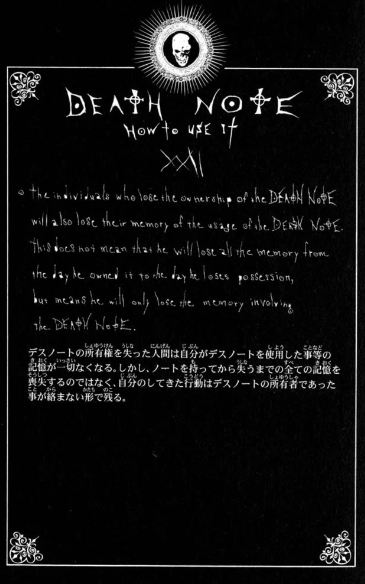 DEATH NOTE
HOW to USE IT
XXII
○ The individuals who lose the ownership of the DEATH NOTE
will also lose their memory of the usage of the DEATH NOTE.
This does not mean that he will lose all the memory from
the day he owned it to the day he loses possession,
but means he will only lose the memory involving
the DEATH NOTE.
デスノートの所有権を失った人間は自分がデスノートを使用した事等の
記憶が一切なくなる。しかし、ノートを持ってから失うまでの全ての記憶を
喪失するのではなく、自分のしてきた行動はデスノートの所有者であった
事が絡まない形で残る。